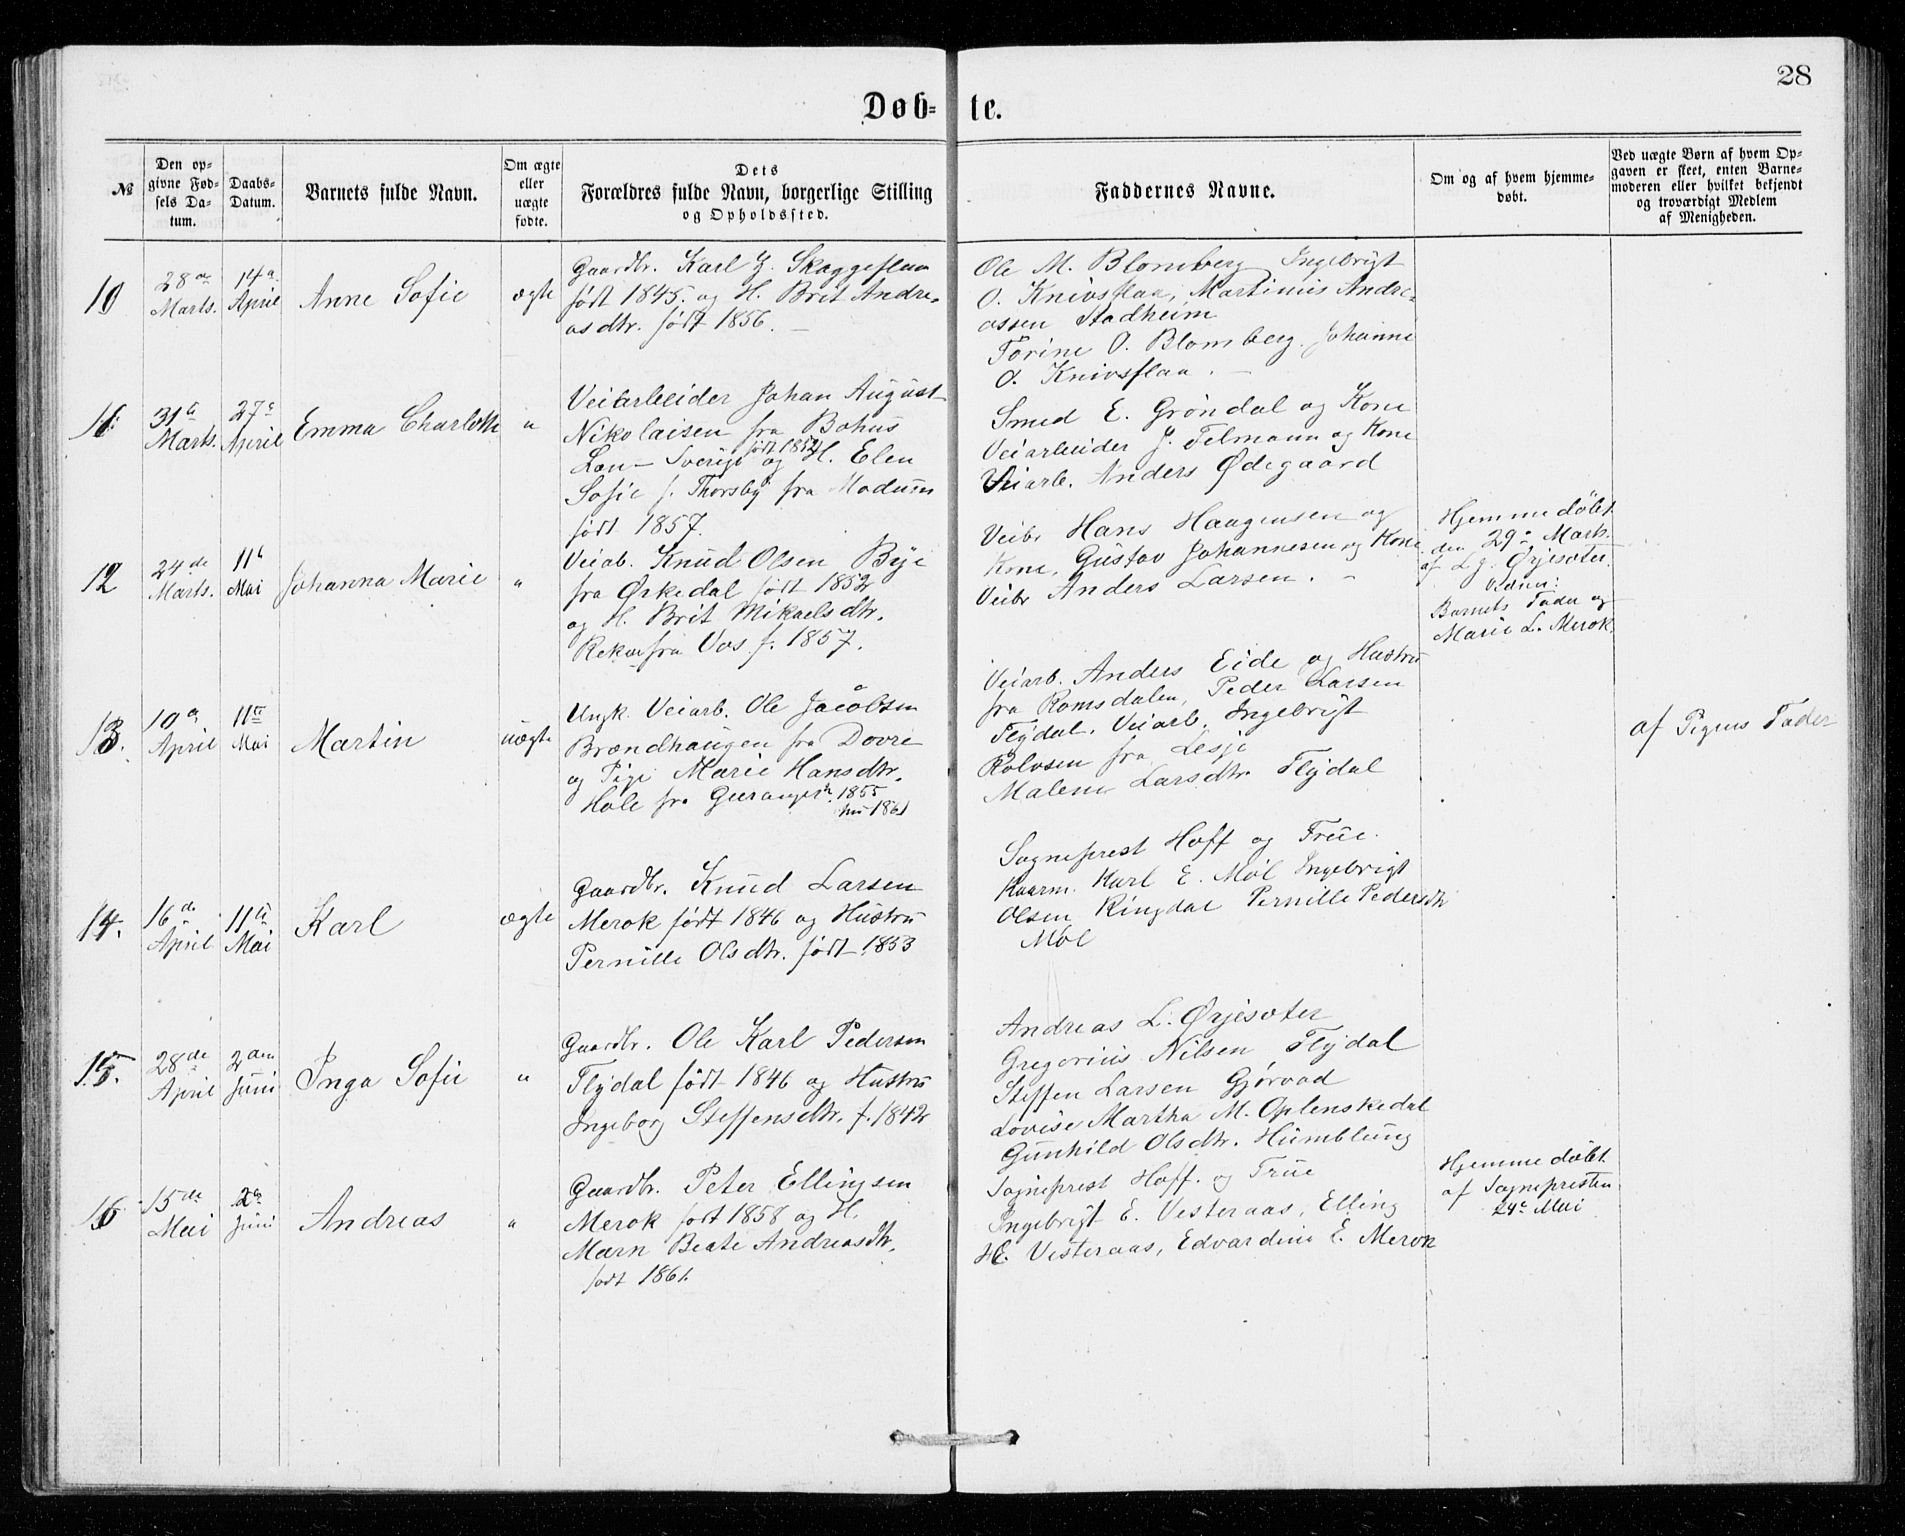 28
Døb- te.
№
Den op-
givne Fød-
sels Da-
tum.
Daabs-
Datum.
Barnets fulde Navn.
Om ægte
eller
uægte
fødte.
Dets
Forældres fulde Navn, borgerlige Stilling
og Opholdssted.
Faddernes Navne.
Om og af hvem hjemme-
døbt.
Ved uægte Børn af hvem Op-
gaven er skeet, enten Barne-
moderen eller hvilket bekjendt
og troværdigt Medlem
af Menigheden.
10
28de
Marts.
14a
April
Anne Sofie
ægte
Gaardbr. Karl J. Skaggeflaa
født 1845. og H. Brit Andre-
asdtr. født 1856.
Ole M. Blomberg Ingebrigt
O. Knivsflaa, Martinus Andre-
assen Stadheim
Torine O. Blomberg. Johanne
O. Knivsflaa.
11
31te
Marts.
27e
April
Emma Charlotte
"
Veiarbeider Johan August
Nikolaisen fra Bohus
Len - Sverige født 1852 og H. Elen
Sofie f. Thorsby fra Modum
født 1857.
Smed E. Grøndal og Kone
Veiarbeider J. Telmann og Kone
Veiarb. Anders Ødegaard
12
24de
Marts.
11te
Mai
Johanna Marie
"
Veiab. Knud Olsen Bye
fra Ørkedal født 1852
og H. Brit Mikaelsdtr.
Rekve fra Vos f. 1857.
Veibr Hans Haagensen og
Kone, Gustav Johannesen og Kone
Veibr Anders Larsen.
Hjemmedøbt
den 29e Marts.
af L. J. Ørjesøter.
Vidne:
Barnets Fader og
Marie L. Merok.
13.
10de
April
11te
Mai
Martin
uægte
Ungk. Veiarb. Ole Jacobsen
Brændhaugen fra Dovre
og Pige Marie Hansdtr.
Hole fra Geiranger. 1855
hun 1861
Veiarb. Anders Eide og Hustru
fra Romsdalen, Peder Larsen
Flydal, Veiarb. Ingebrigt
Rolvsen fra Lesje
Malene Larsdtr. Flydal
af Pigens Fader
14.
16de
April
11te
Mai
Karl
ægte
Gaardbr. Knud Larsen
Merok født 1846 og Hustru
Pernille Olsdtr. født 1853
Sogneprest Hoff og Frue.
Kaarm. Karl E. Møl Ingebrigt
Olsen Ringdal Pernille Pedersdtr
Møl
15.
28de
April
2den
Juni
Inga Sofie
"
Gaardbr. Ole Karl Pedersen
Flydal født 1846 og Hustru
Ingeborg Steffensdtr. f. 1842
Andreas L. Ørjesøter
Gregorius Nilsen Flydal
Steffen Larsen Gjørvad
Lovise Martha M. Oplenskedal
Gunhild Olsdtr. Humblung
16
15de
Mai
2den
Juni
Andreas
"
Gaardbr. Peter Ellingsen
Merok født 1858 og H.
Marn Beate Andreasdtr.
født 1861.
Sogneprest Hoff. og Frue
Ingebrigt E. Vesteraas, Elling
H. Vesteraas, Edvardine E. Merok
Hjemmedøbt
af Sognepresten
24e Mai